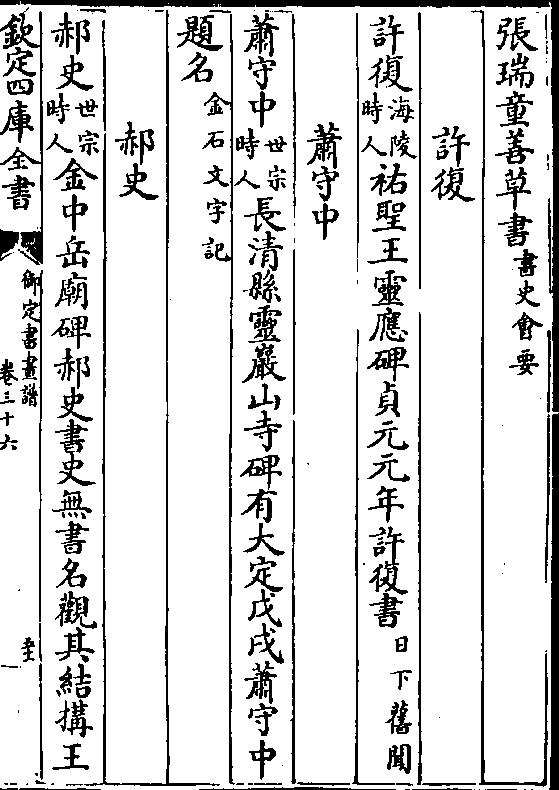 張瑞童善草書書史會要
許復
許復海陵時人祐聖王靈應碑貞元元年許復書日下舊聞
蕭守中
蕭守中世宗時人長清縣靈巖山寺碑有大定戊戌蕭守中
題名金石文字記
郝史
郝史世宗時人金中岳廟碑郝史書史無書名觀其結搆王
欽定四庫全書
御定書畫譜
卷三十六